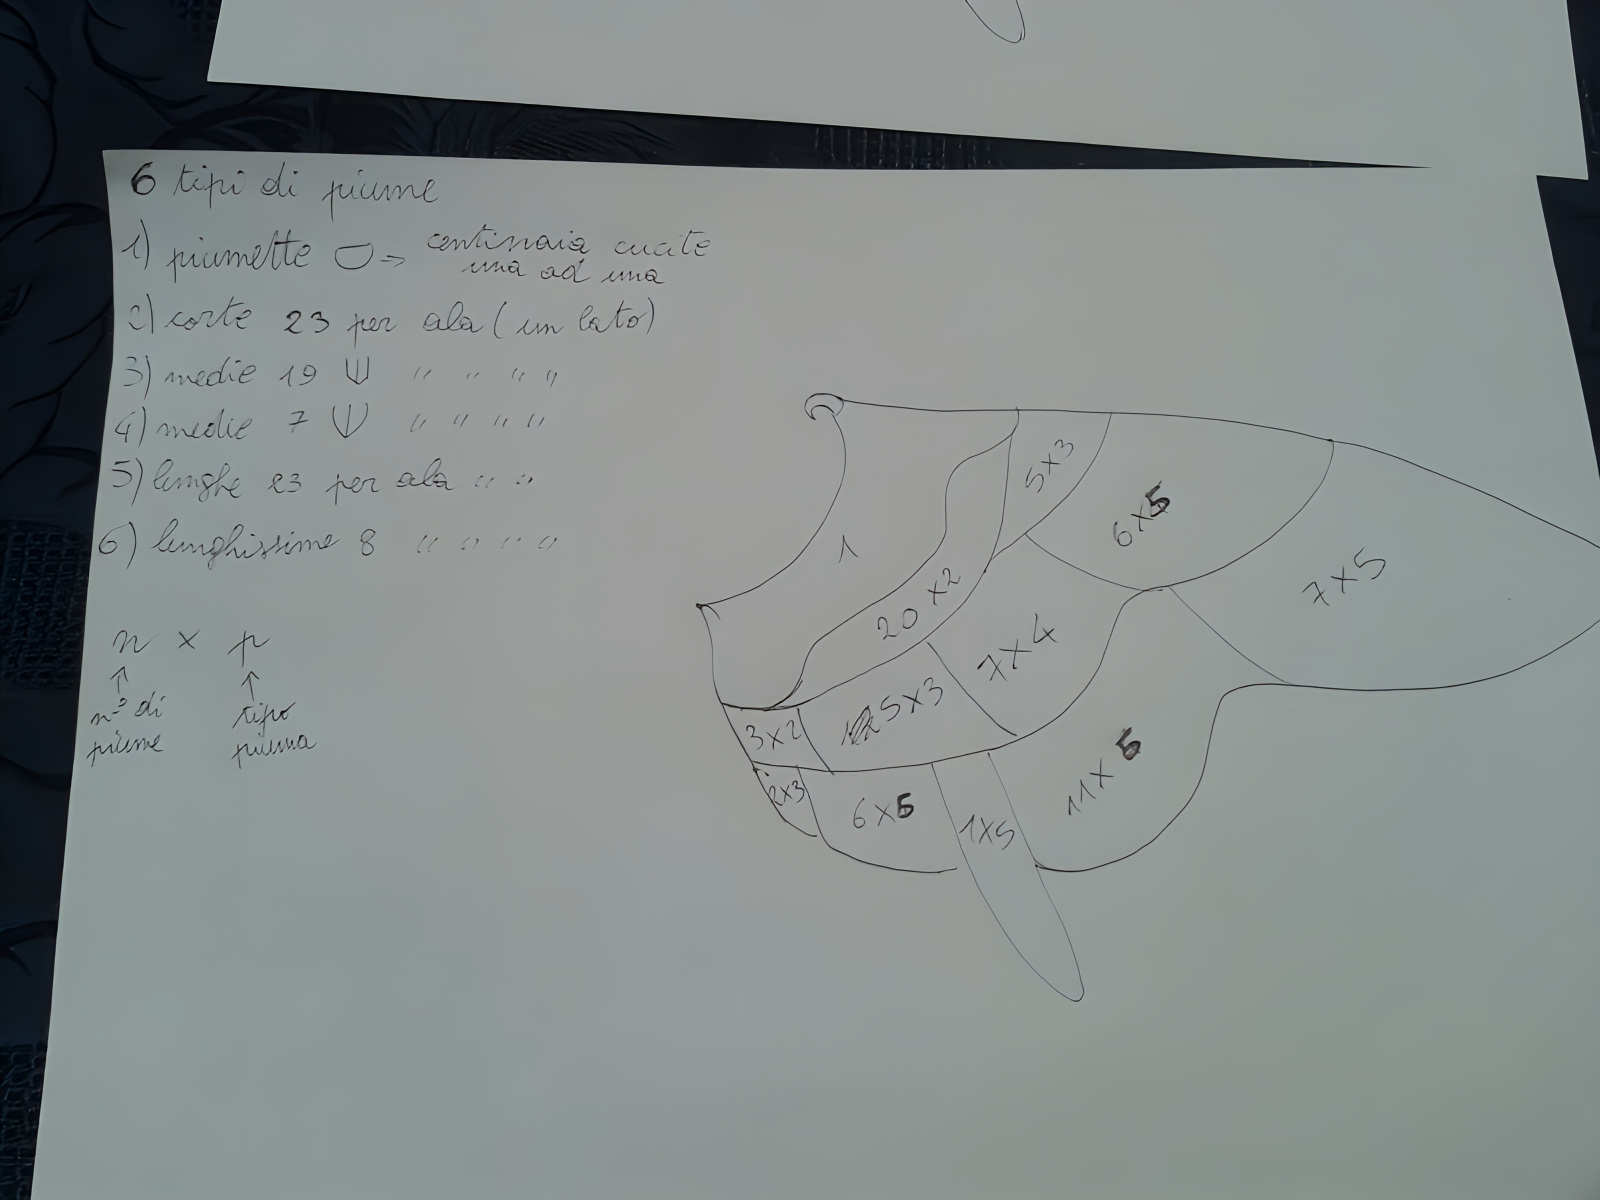 6 tipi di piume
1) piumette => centinaia cucite
una ad una
2) corte 23 per ala (un lato)
3) medie 19 " " " "
4) medie 7 " " " "
5) lunghe 23 per ala " "
6) lunghissime 8 " " " "
n x p
n° di
piume
tipo
piuma
5x3
6x5
1
7x5
20 x2
7x4
5x3
3x2
2x3
6x5
1x5
11x5